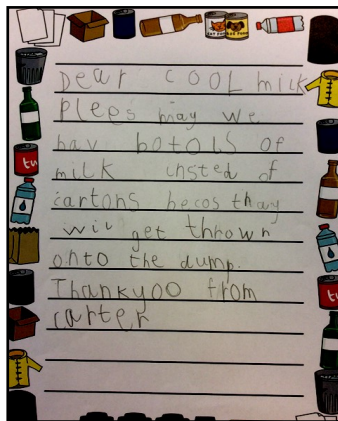 Dear COOL milk
plees may we
hav botols of
milk insted of
cartons becos thay
wil get thrown
onto the dump.
Thankyoo from
carter